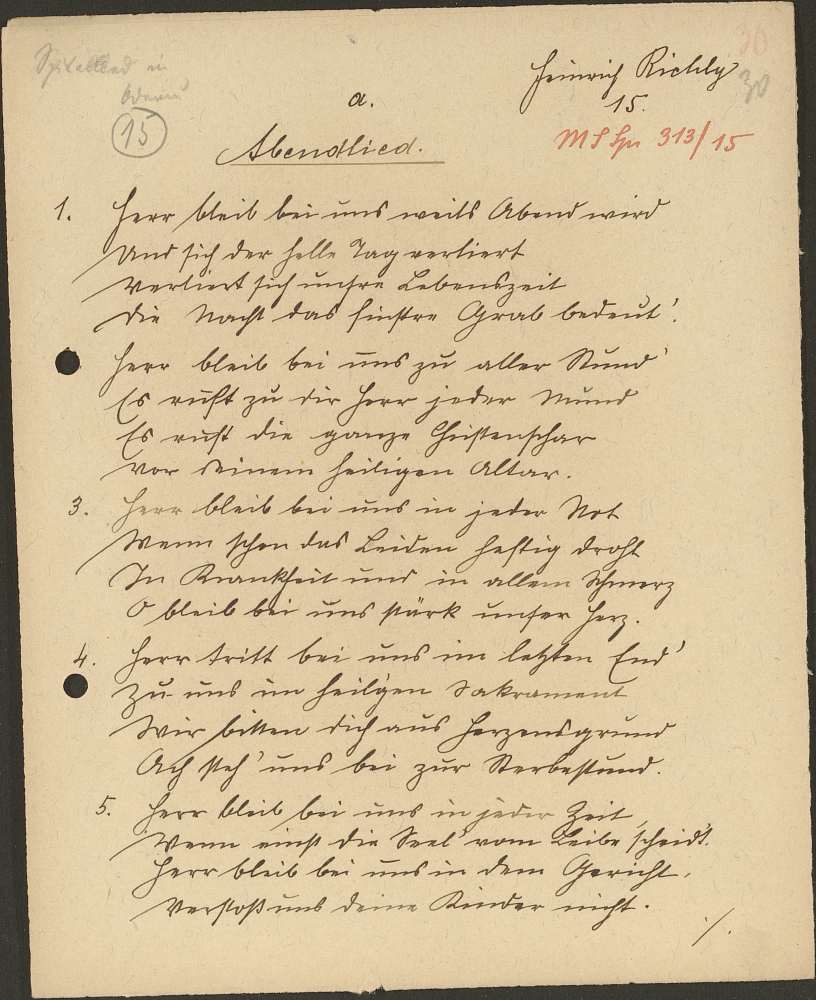 30
Heinrich Richly
30
a.
15.
15
MS Spr 313/15
Abendlied.
1. Herr bleib bei uns weils Abend wird
Und sich der helle Tag verliert
Verliert sich unsre Lebenszeit
Die Nacht das finstre Grab bedeut'.
Herr bleib bei uns zu aller Stund'
Es ruft zu dir Herr jeder Mund
Es ruft die ganze Christenschar
Vor deinem heiligen Altar.
3. Herr bleib bei uns in jeder Not
Wenn schon das Leiden heftig droht
In Krankheit und in allem Schmerz
O bleib bei uns stärk unser Herz.
4. Herr tritt bei uns im letzten End'
Zu uns im heilgen Sakrament
Wir bitten dich aus Herzensgrund
Ach steh' uns bei zur Sterbestund.
5. Herr bleib bei uns in jeder Zeit,
Wenn einst die Seel' vom Leibe scheid't.
Herr bleib bei uns in dem Gericht,
Verstoß uns deine Kinder nicht.
./.